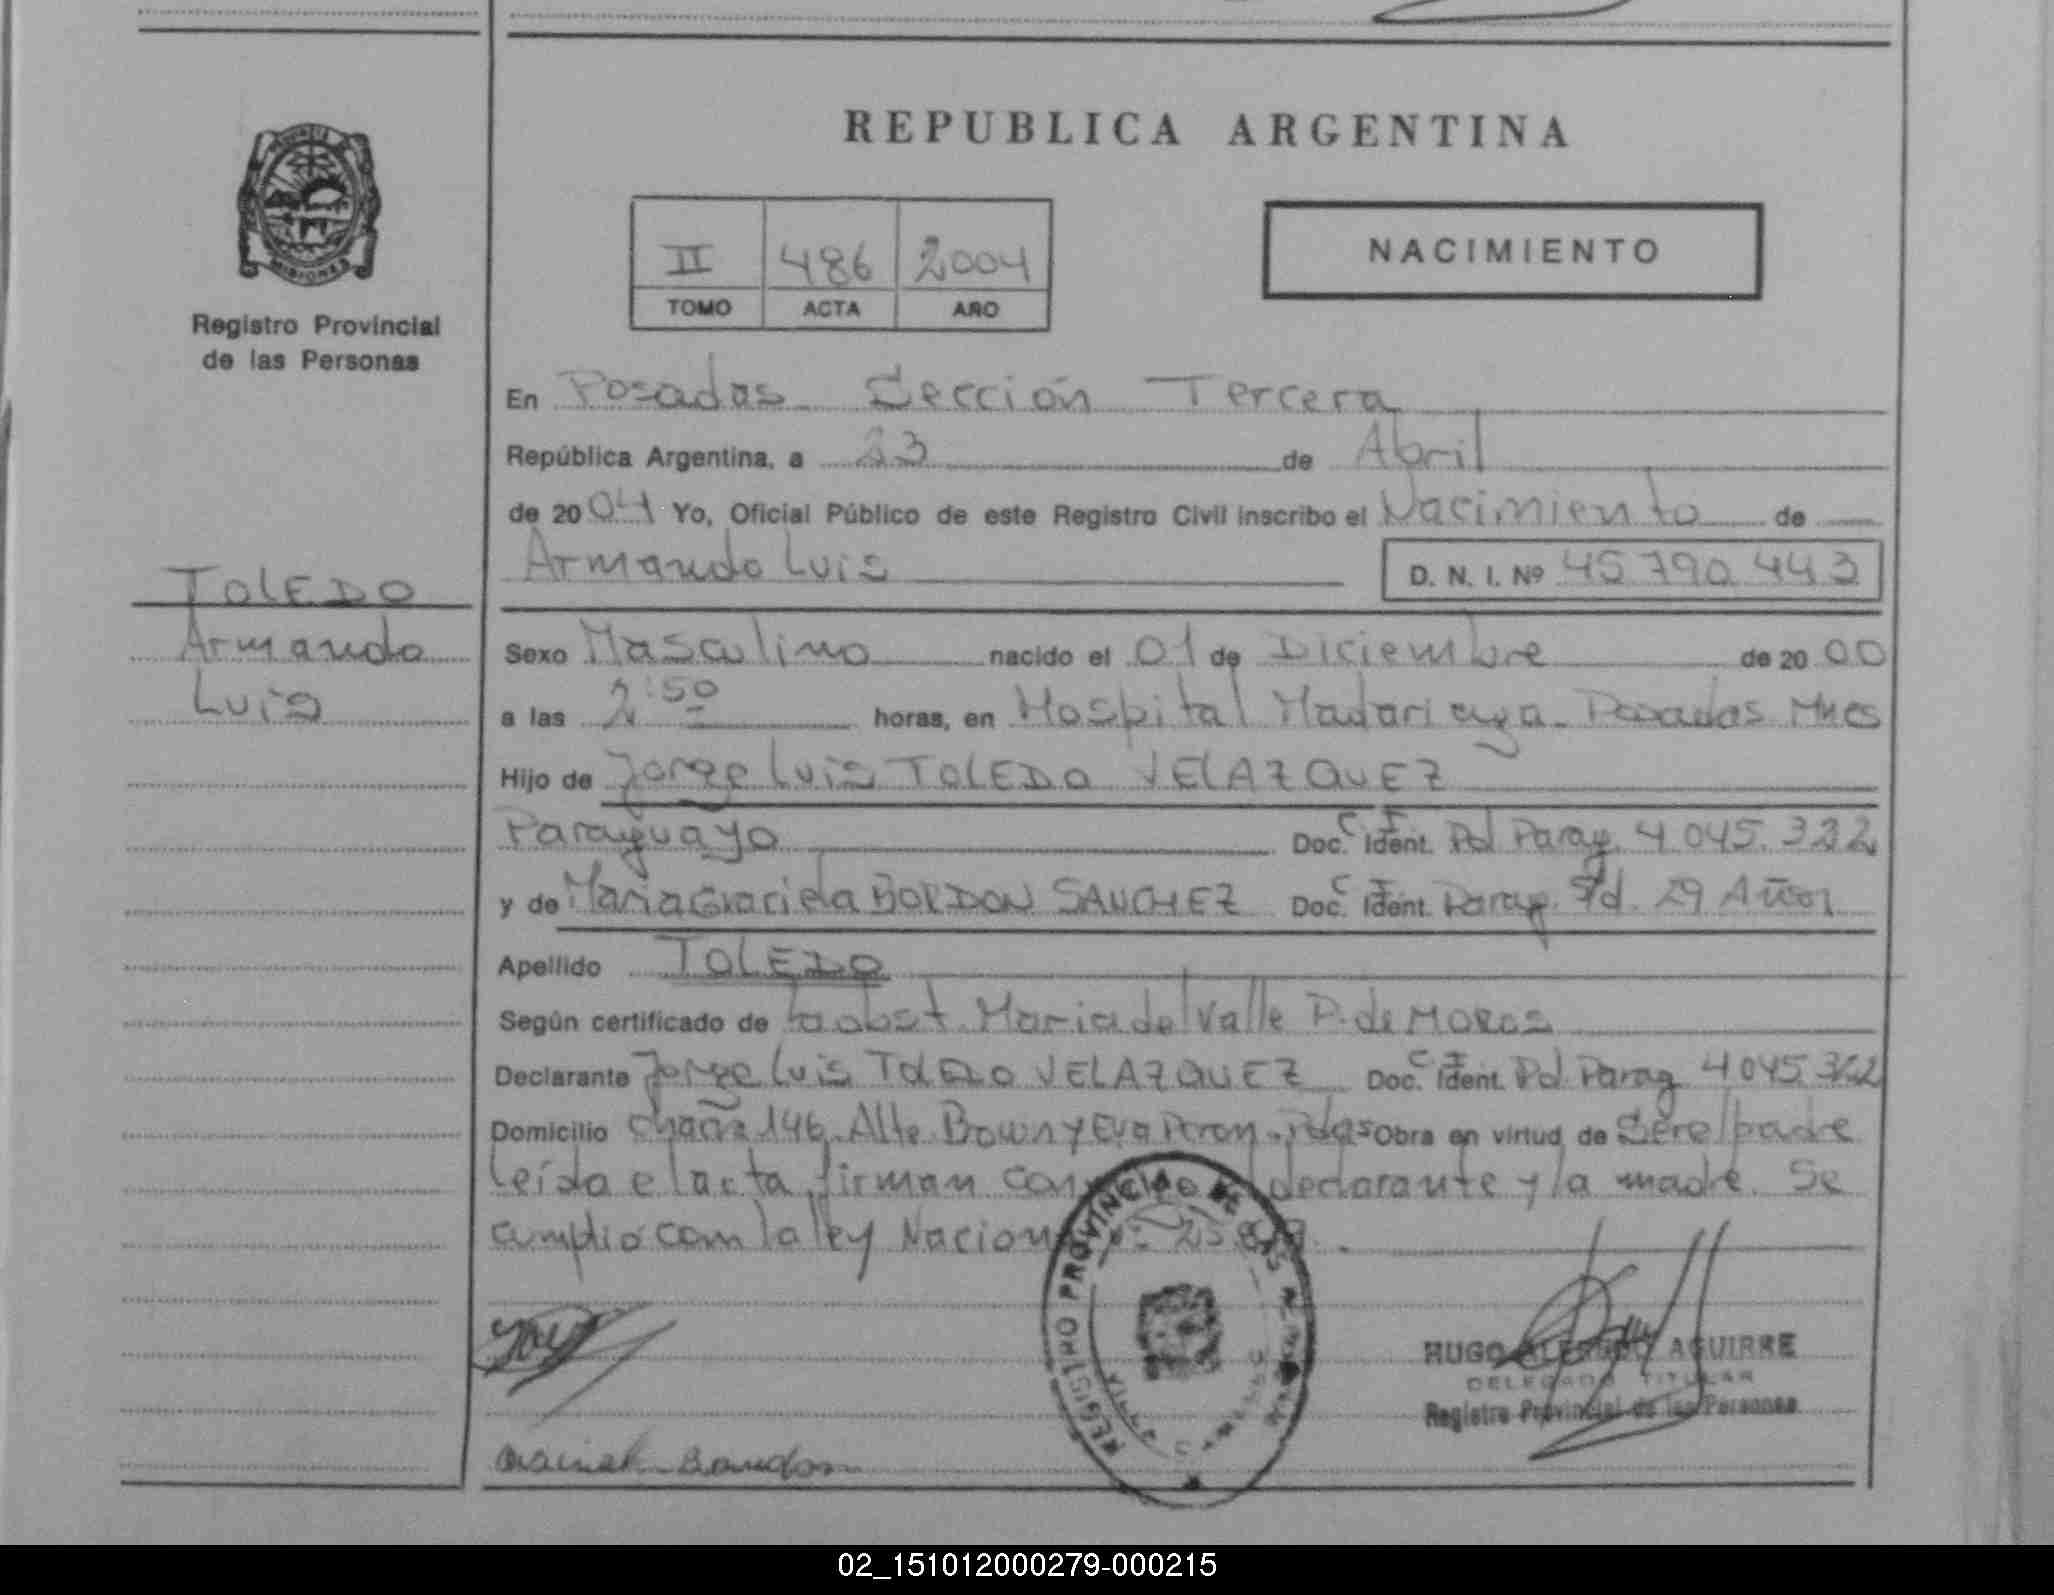 REPUBLICA ARGENTINA
PROVINCIA
MISIONES
Registro Provincial
de las Personas
II 486 2004
TOMO ACTA AÑO
NACIMIENTO
En Posadas Sección Tercera
República Argentina, a 23 de Abril
de 2004 Yo, Oficial Público de este Registro Civil inscribo el Nacimiento de
Armando Luis D. N. I. Nº 45 790 443
TOLEDO
Armando
Luis
Sexo Masculino nacido el 01 de Diciembre de 20 00
a las 2:50 horas, en Hospital Madariaga Posadas Mnes
Hijo de Jorge Luis TOLEDO VELAZQUEZ
Paraguayo Doc. C. Ident. I Pol Parag. 4 045. 322
y de Maria Graciela BORDON SANCHEZ Doc. C. Ident. I Parag. 29 Años
Apellido TOLEDO
Según certificado de la obst. Maria del Valle P. de MOROS
Declarante Jorge Luis TOLEDO VELAZQUEZ Doc. C. Ident. I Pol Parag 4 045.
Domicilio 146 Alte. Brown y Eva Peron. Pdas Obra en virtud de Ser el padre
leída el acta, firman declarante y la madre. Se
cumplió con la ley Nacion
REGISTRO PROVINCIAL DE LAS PERSONAS
HUGO AGUIRRE
DELEGADO TITULAR
Registro Provincial de las Personas
02_151012000279-000215